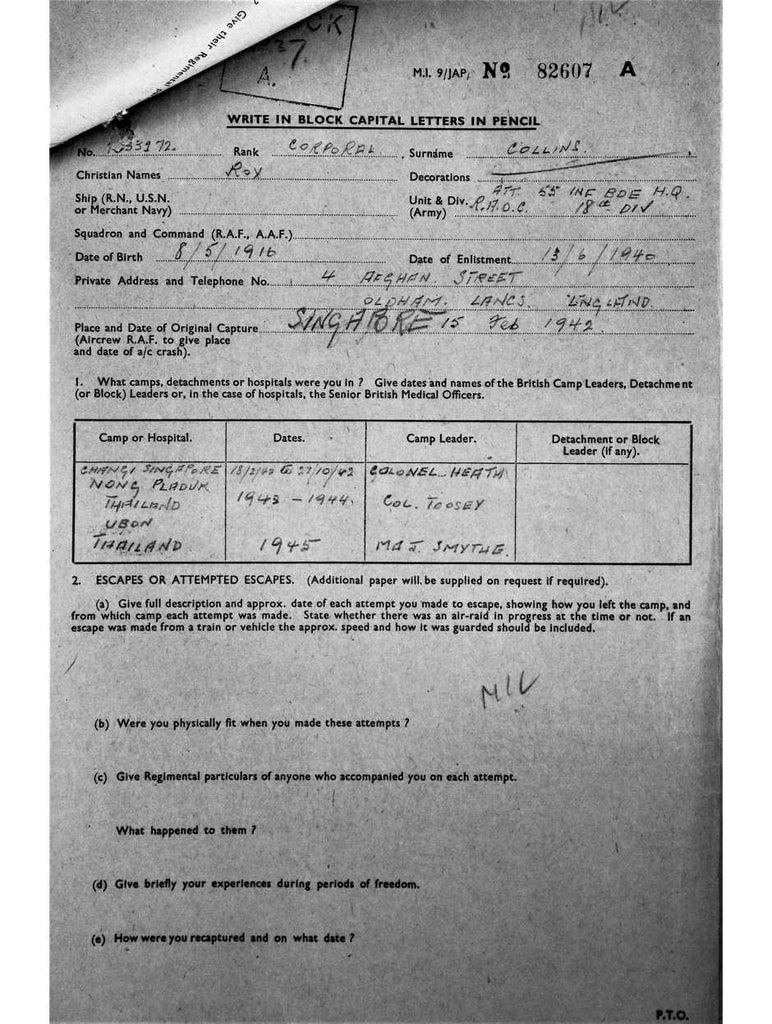 ? Give their Regimental
CK
37.
A.
M.I. 9/JAP. No 82607 A
WRITE IN BLOCK CAPITAL LETTERS IN PENCIL
No. Rank CORPORAL. Surname COLLINS.
Christian Names ROY Decorations
Ship (R.N., U.S.N. or Merchant Navy) Unit & Div. (Army) R.A.O.C. ATT. 55 INF BDE H.Q. 18th DIV
Squadron and Command (R.A.F., A.A.F.)
Date of Birth 8/5/1916 Date of Enlistment 13/6/1940
Private Address and Telephone No. 4 AFGHAN. STREET
OLDHAM. LANCS. ENGLAND.
Place and Date of Original Capture SINGAPORE 15 Feb 1942.
(Aircrew R.A.F. to give place
and date of a/c crash).
1. What camps, detachments or hospitals were you in ? Give dates and names of the British Camp Leaders, Detachment
(or Block) Leaders or, in the case of hospitals, the Senior British Medical Officers.
Camp or Hospital. Dates. Camp Leader. Detachment or Block
Leader (if any).
CHANGI SINGAPORE to /10/42 COLONEL HEATH
NONG PLADUK
THAILAND 1943 - 1944. COL. TOOSEY
UBON
THAILAND 1945 MAJ. SMYTHE.
2. ESCAPES OR ATTEMPTED ESCAPES. (Additional paper will be supplied on request if required).
(a) Give full description and approx. date of each attempt you made to escape, showing how you left the camp, and
from which camp each attempt was made. State whether there was an air-raid in progress at the time or not. If an
escape was made from a train or vehicle the approx. speed and how it was guarded should be included.
(b) Were you physically fit when you made these attempts ?
(c) Give Regimental particulars of anyone who accompanied you on each attempt.
What happened to them ?
(d) Give briefly your experiences during periods of freedom.
(e) How were you recaptured and on what date ?
P.T.O.